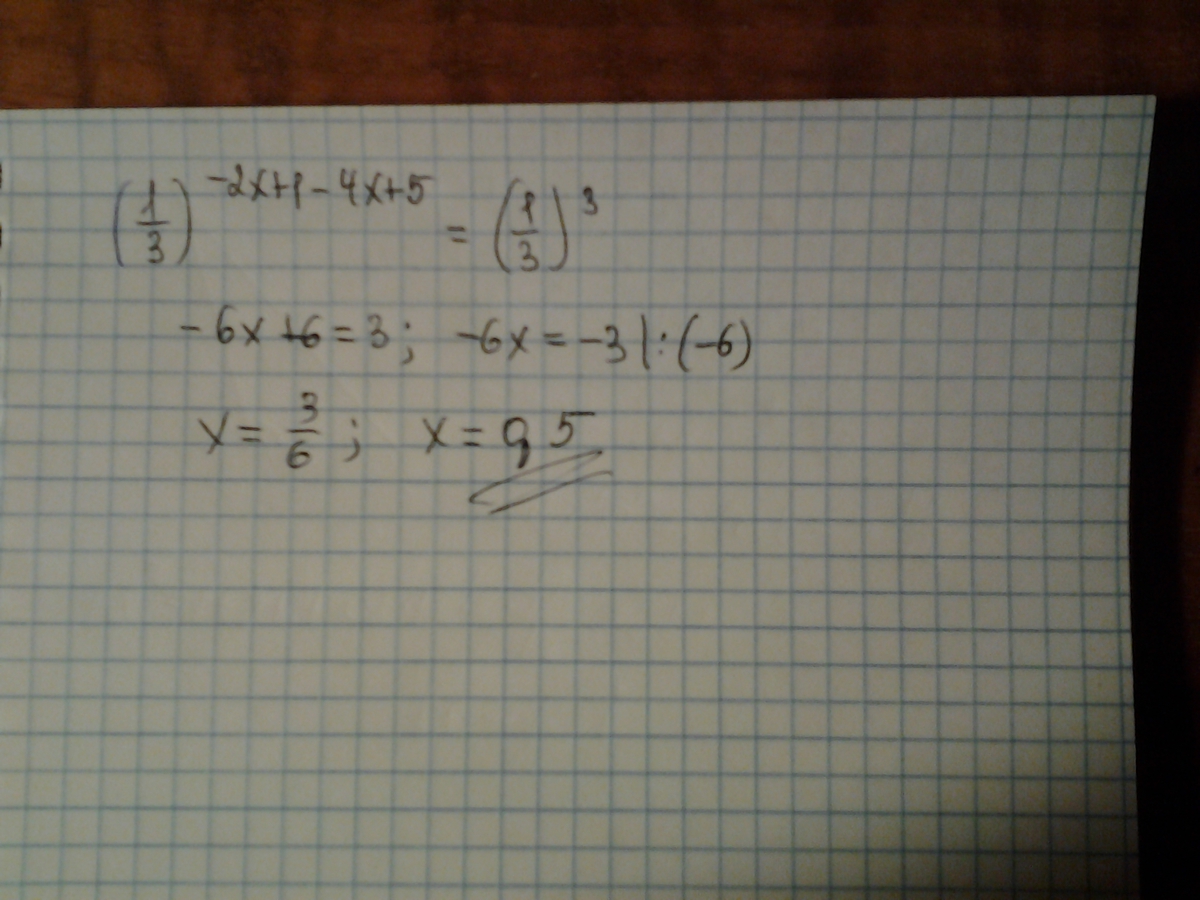 (1/3)^(-2x+1-4x+5) = (1/3)^3
-6x+6=3; -6x=-3|:(-6)
x=3/6; x=0,5